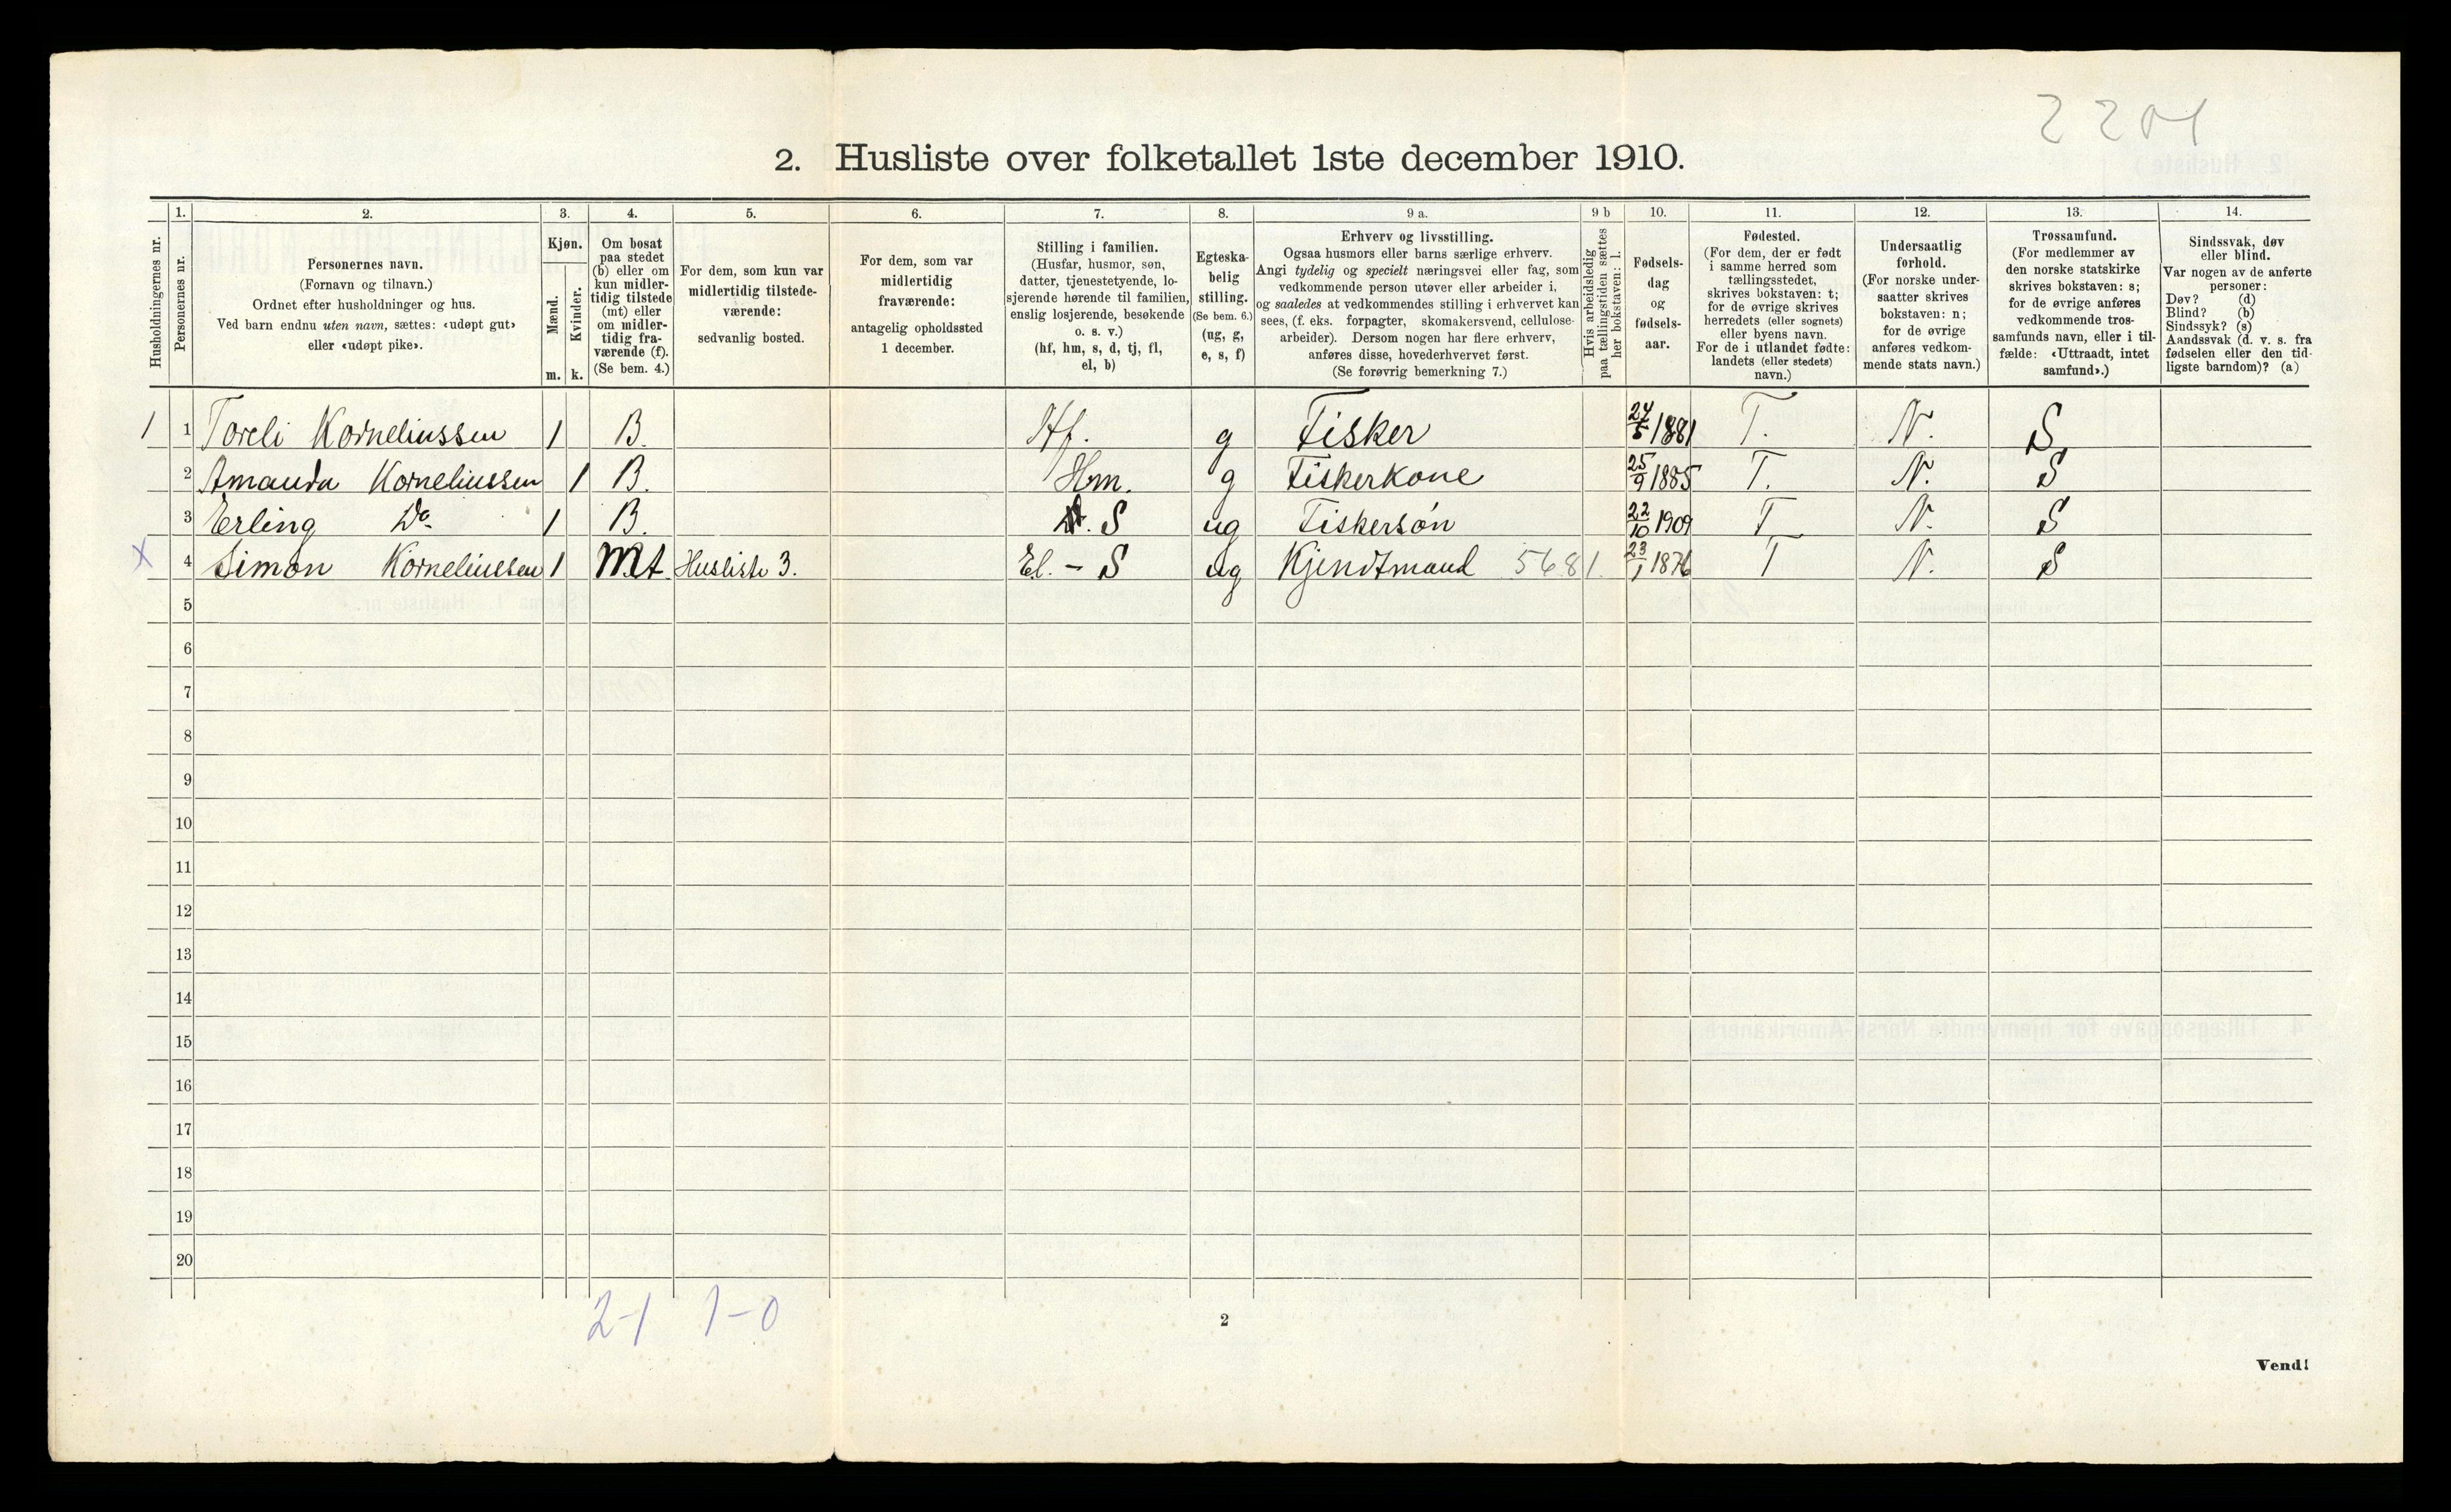 2204
2. Husliste over folketallet 1ste december 1910.
Husholdningernes nr.
1.
Personernes nr.
2.
Personernes navn.
(Fornavn og tilnavn.)
Ordnet efter husholdninger og hus.
Ved barn endnu uten navn, sættes: «udøpt gut»
eller «udøpt pike».
3.
Kjøn.
Mænd.
Kvinder.
m. k.
4.
Om bosat
paa stedet
(b) eller om
kun midler-
tidig tilstede
(mt) eller
om midler-
tidig fra-
værende (f).
(Se bem. 4.)
5.
For dem, som kun var
midlertidig tilstede-
værende:
sedvanlig bosted.
6.
For dem, som var
midlertidig
fraværende:
antagelig opholdssted
1 december.
7.
Stilling i familien.
(Husfar, husmor, søn,
datter, tjenestetyende, lo-
sjerende hørende til familien,
enslig losjerende, besøkende
o. s. v.)
(hf, hm, s, d, tj, fl,
el, b)
8.
Egteska-
belig
stilling.
(Se bem. 6.)
(ug, g,
e, s, f)
9 a.
Erhverv og livsstilling.
Ogsaa husmors eller barns særlige erhverv.
Angi tydelig og specielt næringsvei eller fag, som
vedkommende person utøver eller arbeider i,
og saaledes at vedkommendes stilling i erhvervet kan
sees, (f. eks. forpagter, skomakersvend, cellulose-
arbeider). Dersom nogen har flere erhverv,
anføres disse, hovederhvervet først.
(Se forøvrig bemerkning 7.)
9 b
Hvis arbeidsledig
paa tællingstiden sættes
her bokstaven: l.
10.
Fødsels-
dag
og
fødsels-
aar.
11.
Fødested.
(For dem, der er født
i samme herred som
tællingsstedet,
skrives bokstaven: t;
for de øvrige skrives
herredets (eller sognets)
eller byens navn.
For de i utlandet fødte:
landets (eller stedets)
navn.)
12.
Undersaatlig
forhold.
(For norske under-
saatter skrives
bokstaven: n;
for de øvrige
anføres vedkom-
mende stats navn.)
13.
Trossamfund.
(For medlemmer av
den norske statskirke
skrives bokstaven: s;
for de øvrige anføres
vedkommende tros-
samfunds navn, eller i til-
fælde: «Uttraadt, intet
samfund».)
14.
Sindssvak, døv
eller blind.
Var nogen av de anførte
personer:
Døv? (d)
Blind? (b)
Sindssyk? (s)
Aandssvak (d. v. s. fra
fødselen eller den tid-
ligste barndom)? (a)
1 1 Toreli Korneliussen 1 B. Hf. g Fisker 24/5 1881 T. N. S
2 Amanda Korneliussen 1 B. Hm. g Fiskerkone 25/9 1885 T. N. S
3 Erling Do. 1 B. S ug Fiskersøn 22/10 1909 T N. S
x 4 Simon Korneliussen 1 Mt Husliste 3. El. - S ug Kjendtmand 5681. 23/1 1876 T N. S
5
6
7
8
9
10
11
12
13
14
15
16
17
18
19
20
2-1 1-0
2
Vend!